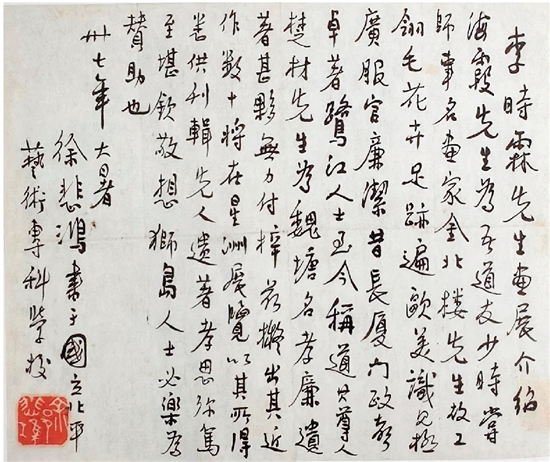 李時霖先生畫展介紹
海霞先生為吾道友少時嘗
師事名畫家金北樓先生故工
翎毛花卉足跡遍歐美識見極
廣服官廉潔昔長厦門政聲
卓著鷺江人士至今稱道其尊人
楚材先生為魏塘名孝廉遺
著甚夥無力付梓茲擬出其近
作数十將在星洲展覽以其所得
悉供刊輯先人遺著孝思弥篤
至堪欽敬想獅島人士必樂為
贊助也
卅七年大暑
徐悲鴻書于國立北平
藝術專科學校